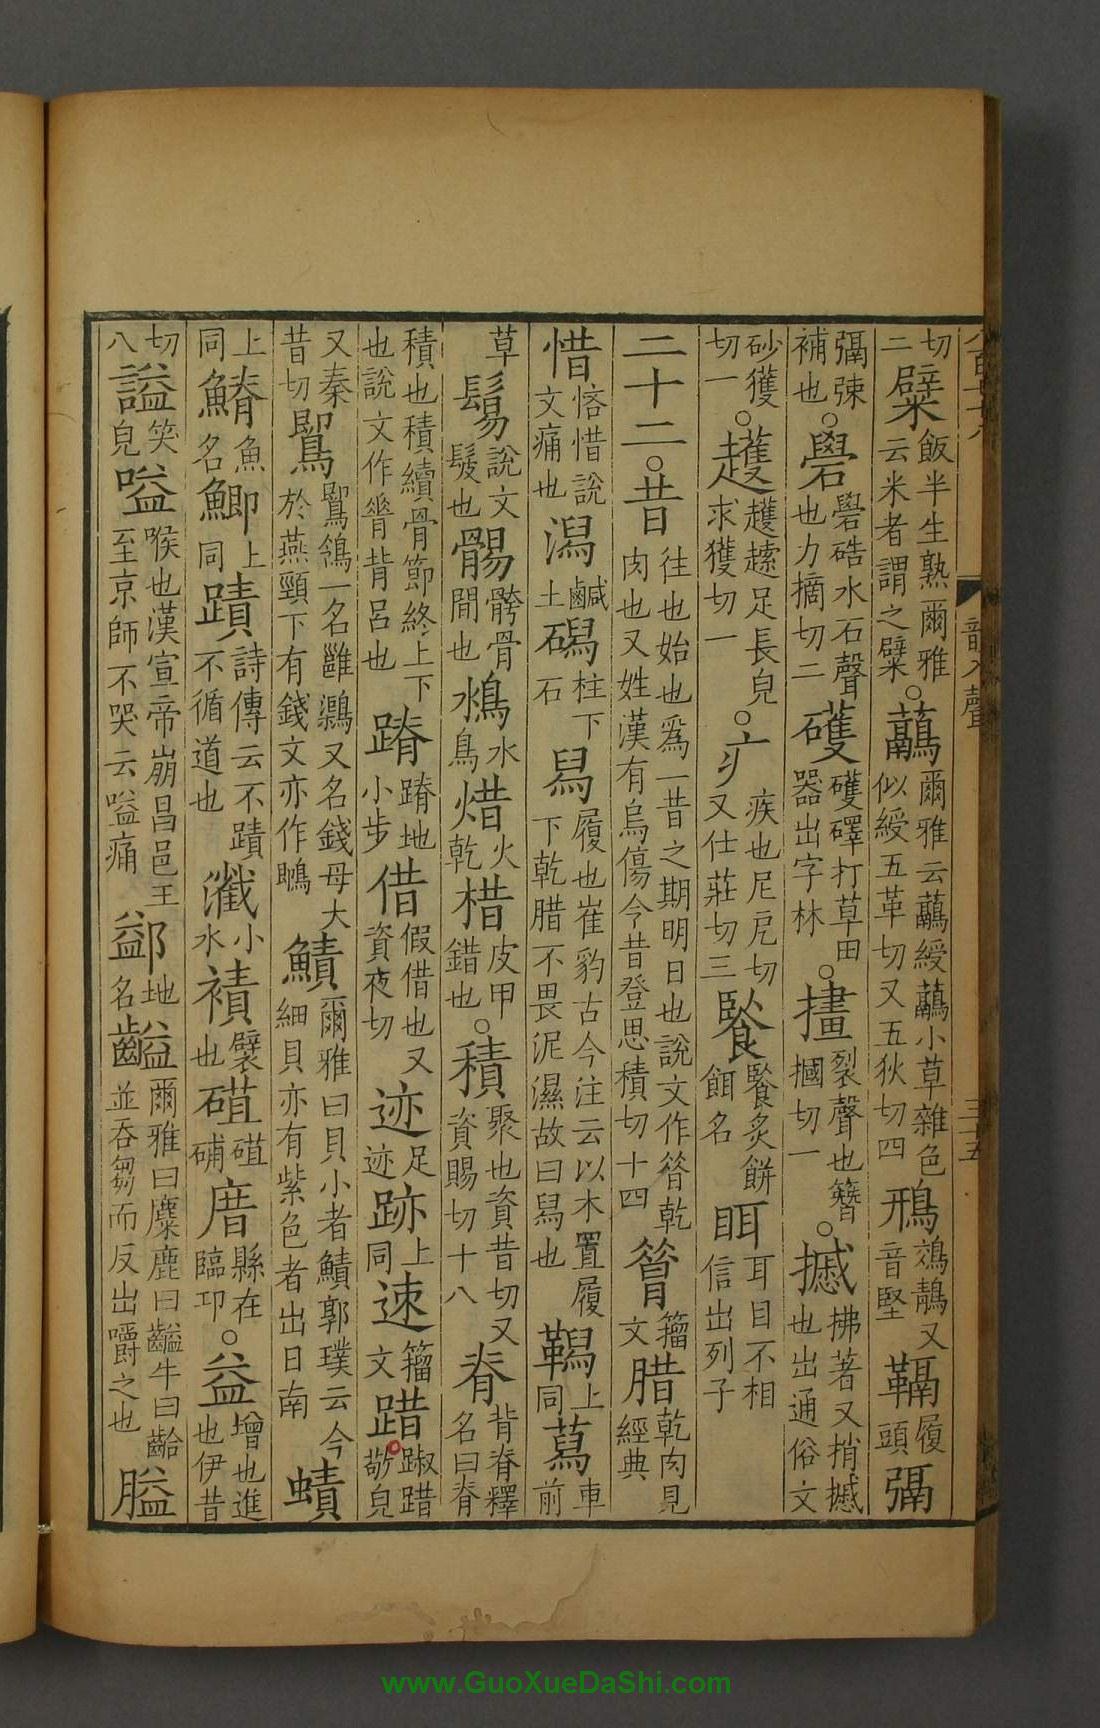 切二糪飯半生熟爾雅云米者謂之糪○虉爾雅云虉綬虉小草雜色似綬五革切又五狄切四鳽鵁鶄又音堅䩹履頭弻
弻㑛補也○礐礐硞水石聲也力摘切二䂄䂄礋打草田器出字林○㨰裂聲也簎摑切一○摵拂著又捎摵也出通俗文
砂獲切一○䞵䞵䞽足長皃求獲切一○疒疾也尼戹切又仕莊切三䬵䬵炙餅餌名眲耳目不相信出列子
二十二○昔往也始也爲一昔之期明日也說文作㫺乾肉也又姓漢有烏傷令昔登思積切十四㫺籀文腊乾肉見經典
惜悋惜說文痛也潟鹹土磶柱下石舄履也崔豹古今注云以木置履下乾腊不畏泥濕故曰舄也䩳上同蕮車前
草鬄說文髲也䯜髂骨間也䲽水鳥焟火乾棤皮甲錯也○積聚也資昔切又資賜切十八脊背脊釋名曰脊
積也積續骨節終上下也說文作𦟝背呂也蹐蹐地小步借假借也又資夜切迹足迹跡上同速籀文踖踧踖敬皃
又秦昔切鶪鶪鴒一名雝鸈又名錢母大於燕頸下有錢文亦作鶪鰿爾雅曰貝小者鰿郭璞云今細貝亦有紫色者出日南蟦
上同鰿魚名鯽上同蹟詩傳云不蹟不循道也瀸小水襀襞也碏碏䃗唶縣在臨邛○益增也進也伊昔
切八謚笑皃嗌喉也漢宣帝崩昌邑王至京師不哭云嗌痛鄨地名齸爾雅曰麋鹿曰齸牛曰齝並吞芻而反出嚼之也膉
韻入聲
三十五
www.GuoXueDaShi.com